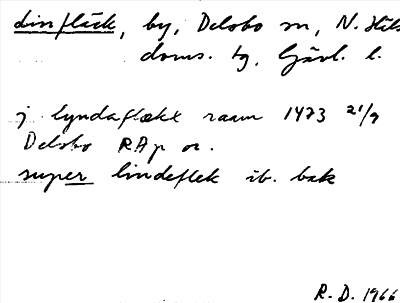 Linfläck, by, Delsbo sn, N. Häls
doms. tg, Gävl. l.
j lyndaflækt raam 1473 21/9
Delsbo RAp or.
super lindeflek ib. bak
R. D. 1966